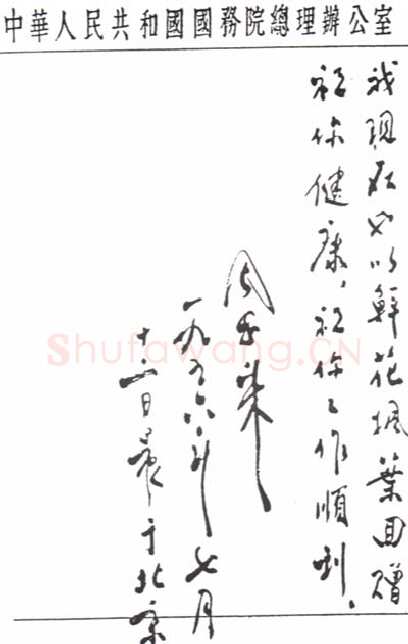 中華人民共和國國務院總理辦公室
我現在也以鮮花楓葉回贈
祝你健康，祝你工作順利。
周恩来
一九五六年七月
十一日晨于北京
Shufawang.CN